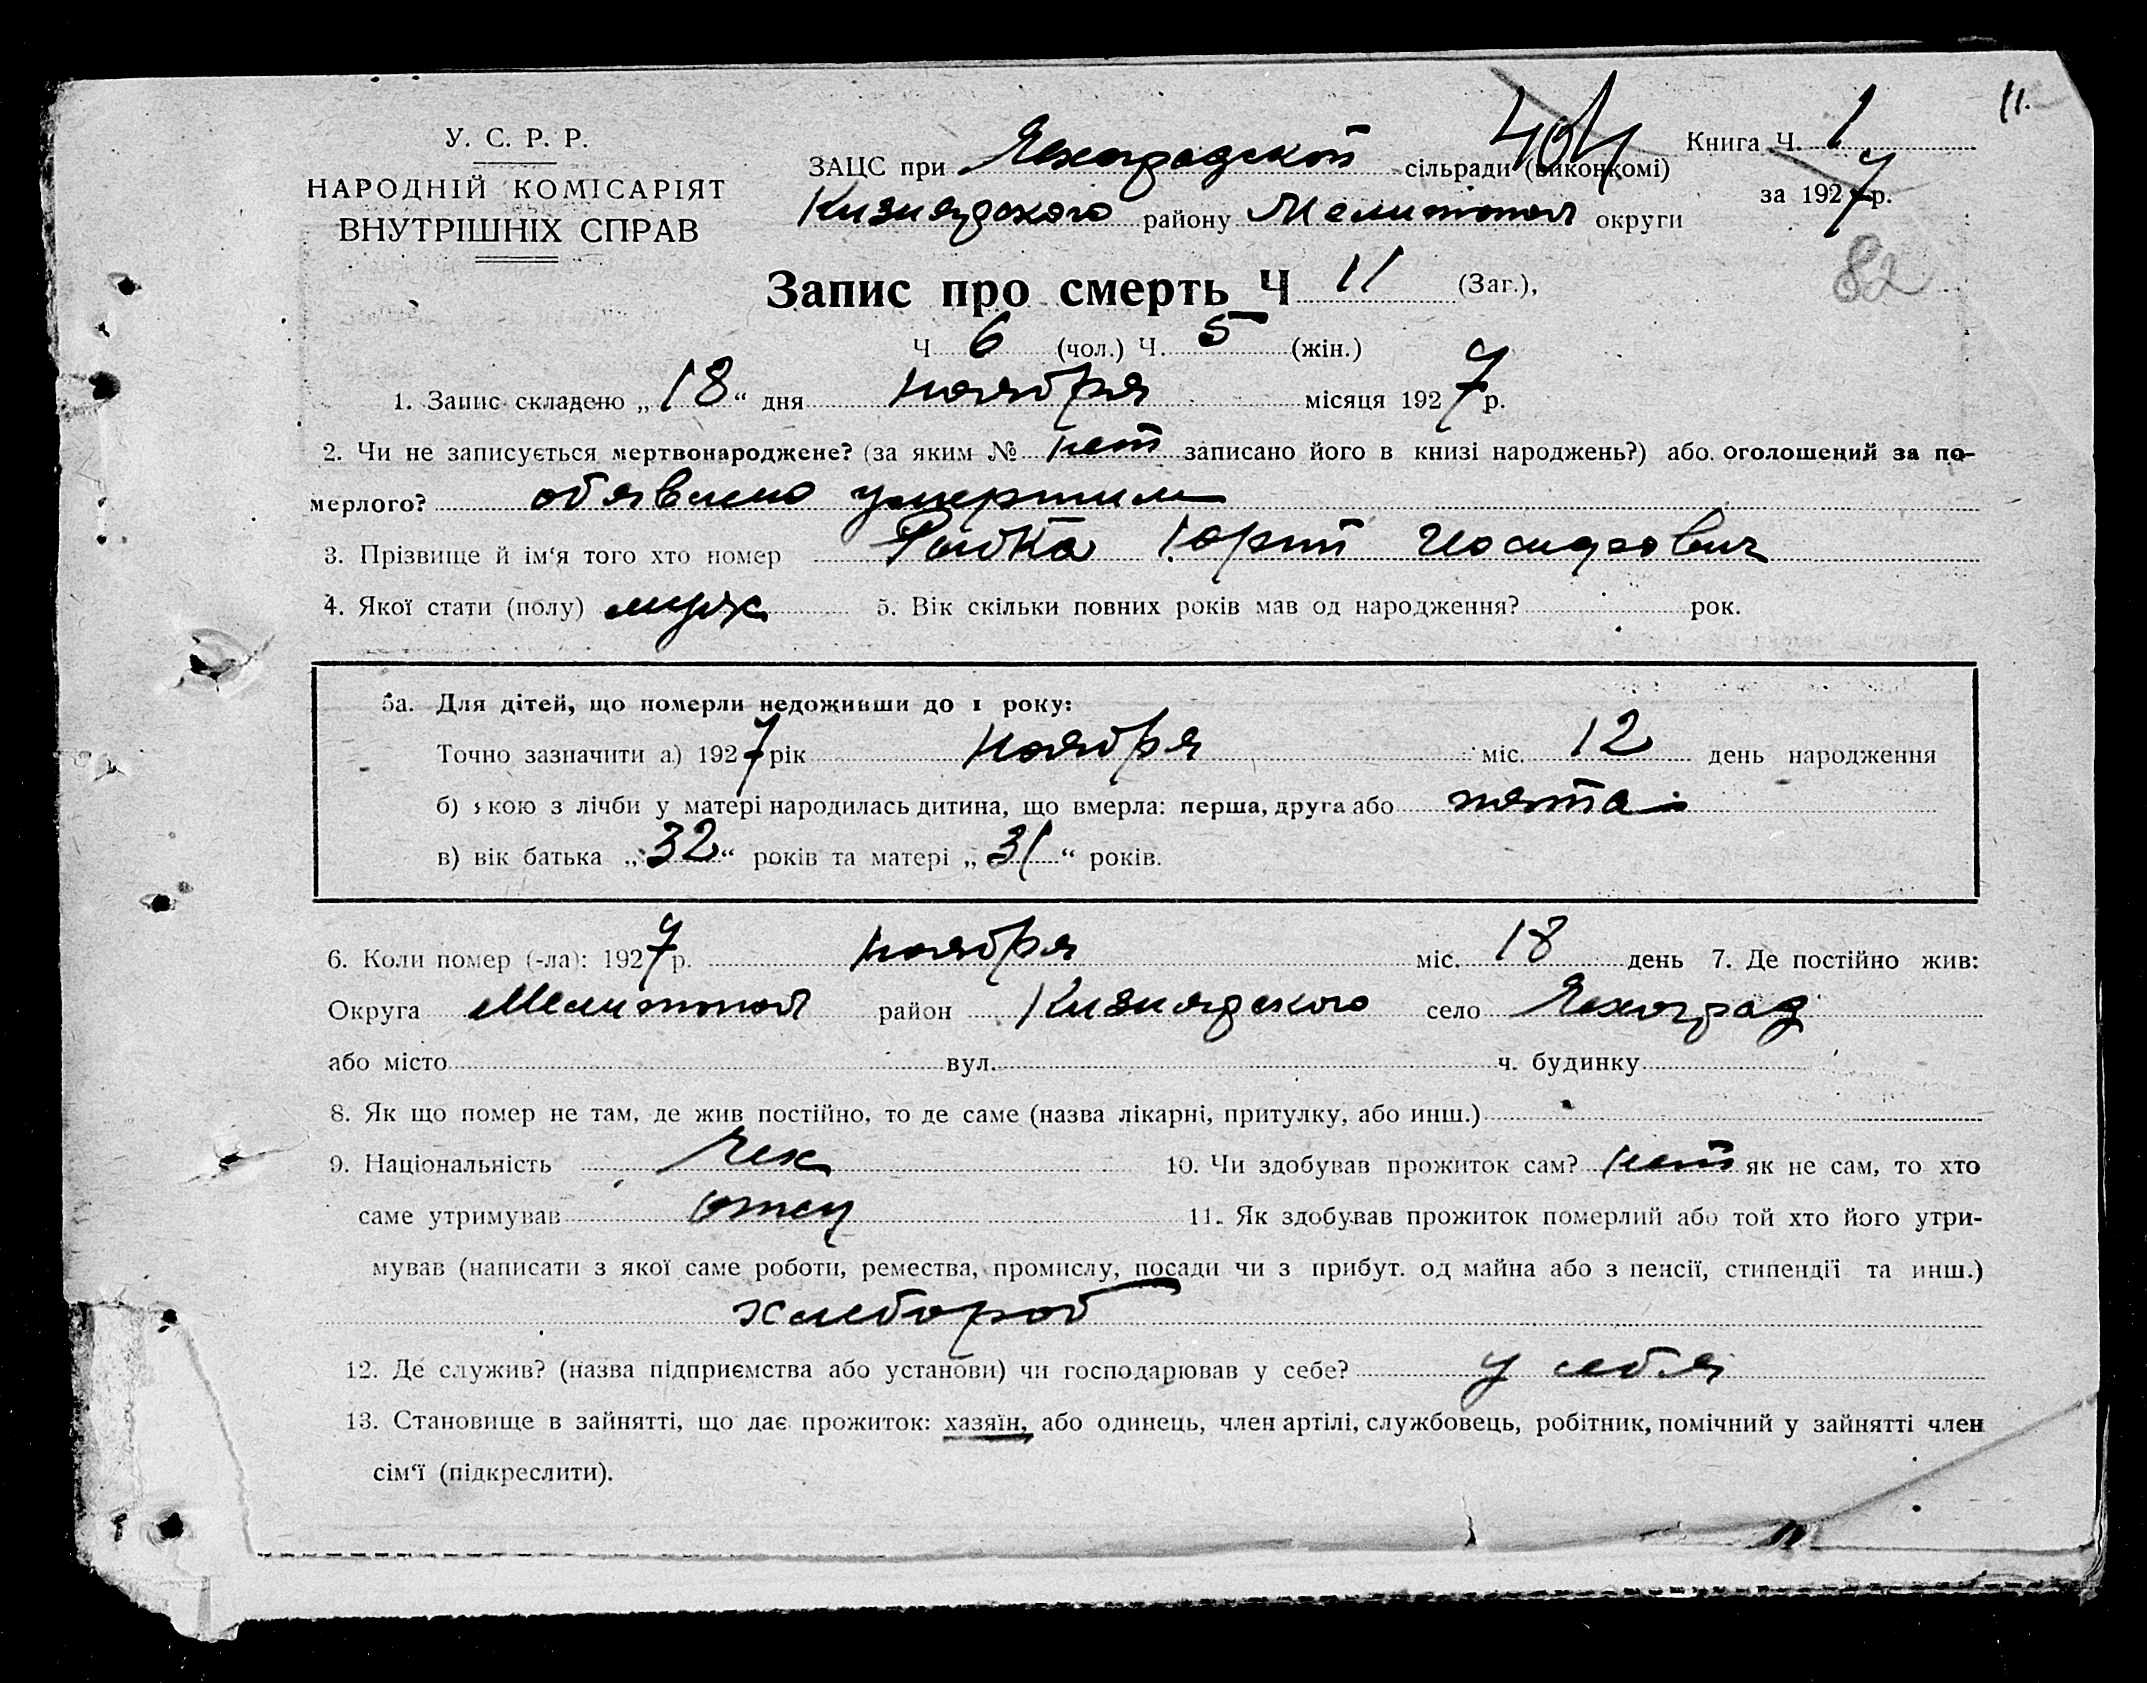 11.
У. С. Р. Р.
НАРОДНІЙ КОМІСАРІЯТ
ВНУТРІШНІХ СПРАВ
ЗАЦС при Чехоградской сільради (виконкомі)
404
Книга Ч. 1
за 1927 р.
Кизиярского району Мелитопол округи
82
Запис про смерть Ч 11 (Заг.),
Ч 6 (чол.) Ч. 5 (жін.)
1. Запис складено „18“ дня ноября місяця 1927 р.
2. Чи не записується мертвонароджене? (за яким № нет записано його в книзі народжень?) або оголошений за по-
мерлого? обявлено умершим
3. Прізвище й ім‘я того хто помер Рыбка Юрий Иосифович
4. Якої стати (полу) муж 5. Вік скільки повних років мав од народження? рок.
5а. Для дітей, що померли недоживши до 1 року:
Точно зазначити а) 1927 рік ноября міс. 12 день народження
б) якою з лічби у матері народилась дитина, що вмерла: перша, друга або пята
в) вік батька „32“ років та матері „31“ років.
6. Коли помер (-ла): 1927 р. ноября міс. 18 день 7. Де постійно жив:
Округа Мелитопол район Кизиярского село Чехоград
або місто вул. ч. будинку
8. Як що помер не там, де жив постійно, то де саме (назва лікарні, притулку, або инш.)
9. Національність Чех 10. Чи здобував прожиток сам? нет як не сам, то хто
саме утримував отец 11. Як здобував прожиток померлий або той хто його утри-
мував (написати з якої саме роботи, ремества, промислу, посади чи з прибут. од майна або з пенсії, стипендії та инш.)
хлебороб
12. Де служив? (назва підприємства або установи) чи господарював у себе? у себя
13. Становище в зайнятті, що дає прожиток: хазяїн, або одинець, член артілі, службовець, робітник, помічний у зайнятті член
сім‘ї (підкреслити).